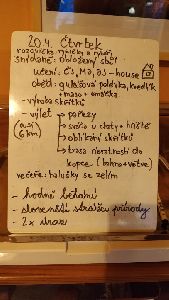 20.4. Čtvrtek
rozcvičky
snídaně: obložený chléb
učení: ČJ, MA, AJ - house
oběd: gulášová polévka, knedlík
+ maso + omáčka
- výroba skřítků
- výlet → pařezy
(asi 6 km)
→ svačina u chaty + hřiště
→ oblíkání skřítků
→ trasa náročnosti do
kopce (bahno + větve)
večeře: halušky se zelím
- hodně běhání
- slovenští strážci přírody
- 2x úraz